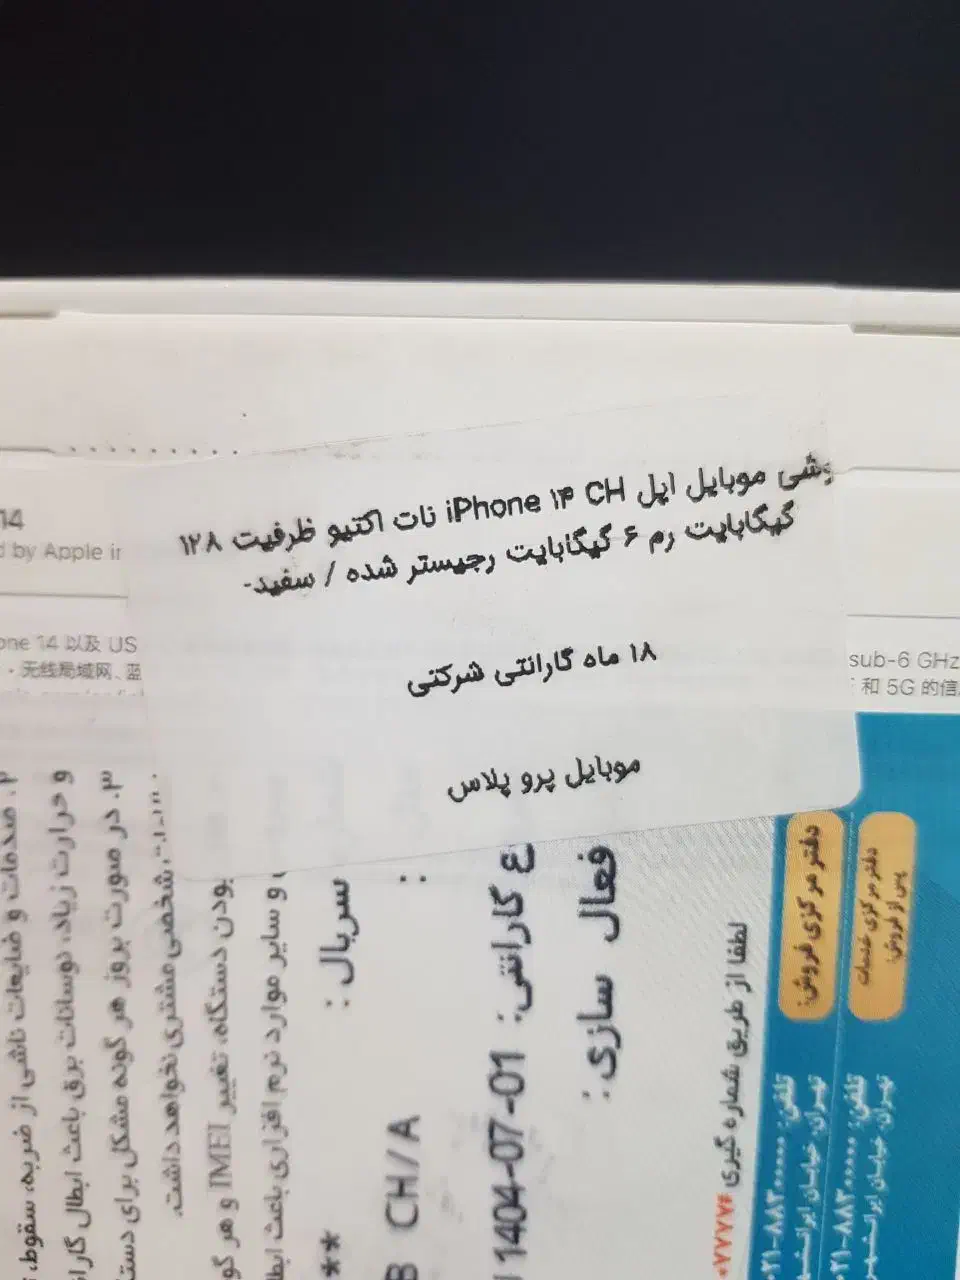 14
by Apple
گوشی موبایل اپل iPhone ۱۴ CH نات اکتیو ظرفیت ۱۲۸
گیگابایت رم ۶ گیگابایت رجیستر شده / سفید-
۱۸ ماه گارانتی شرکتی
موبایل پرو پلاس
one 14 以及 US
无线局域网、蓝
sub-6 GHz
和 5G 的信
۲. صدمات و ضایعات ناشی از ضربه، سقوط،
و حرارت زیاد، نوسانات برق باعث ابطال
۳. در صورت بروز هر گونه مشکل برای
شخصی مشتری نخواهد داشت.
بودن دستگاه، تغییر IMEI و هر
و سایر موارد نرم افزاری باعث
سریال :
**
:
CH/A
گارانتی: 1404-07-01
فعال سازی :
لطفا از طریق شماره گیری
دفتر مرکزی فروش:
تلفن:
تهران، خیابان
دفتر مرکزی خدمات
پس از فروش:
تلفن:
تهران، خیابان